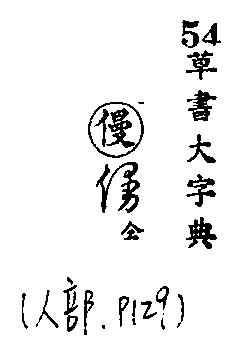 54草書大字典
僈
仝
(人部.P129)